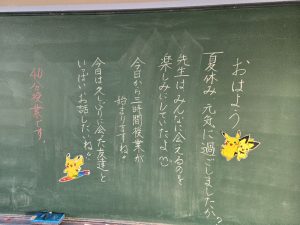 おはよう
夏休み 元気に過ごしましたか?
先生はみんなに会えるのを
楽しみにしていたよ
今日から三時間授業が
始まりますね。
今日は久しぶりに会った友達と
いっぱいお話したいね。
40分授業です